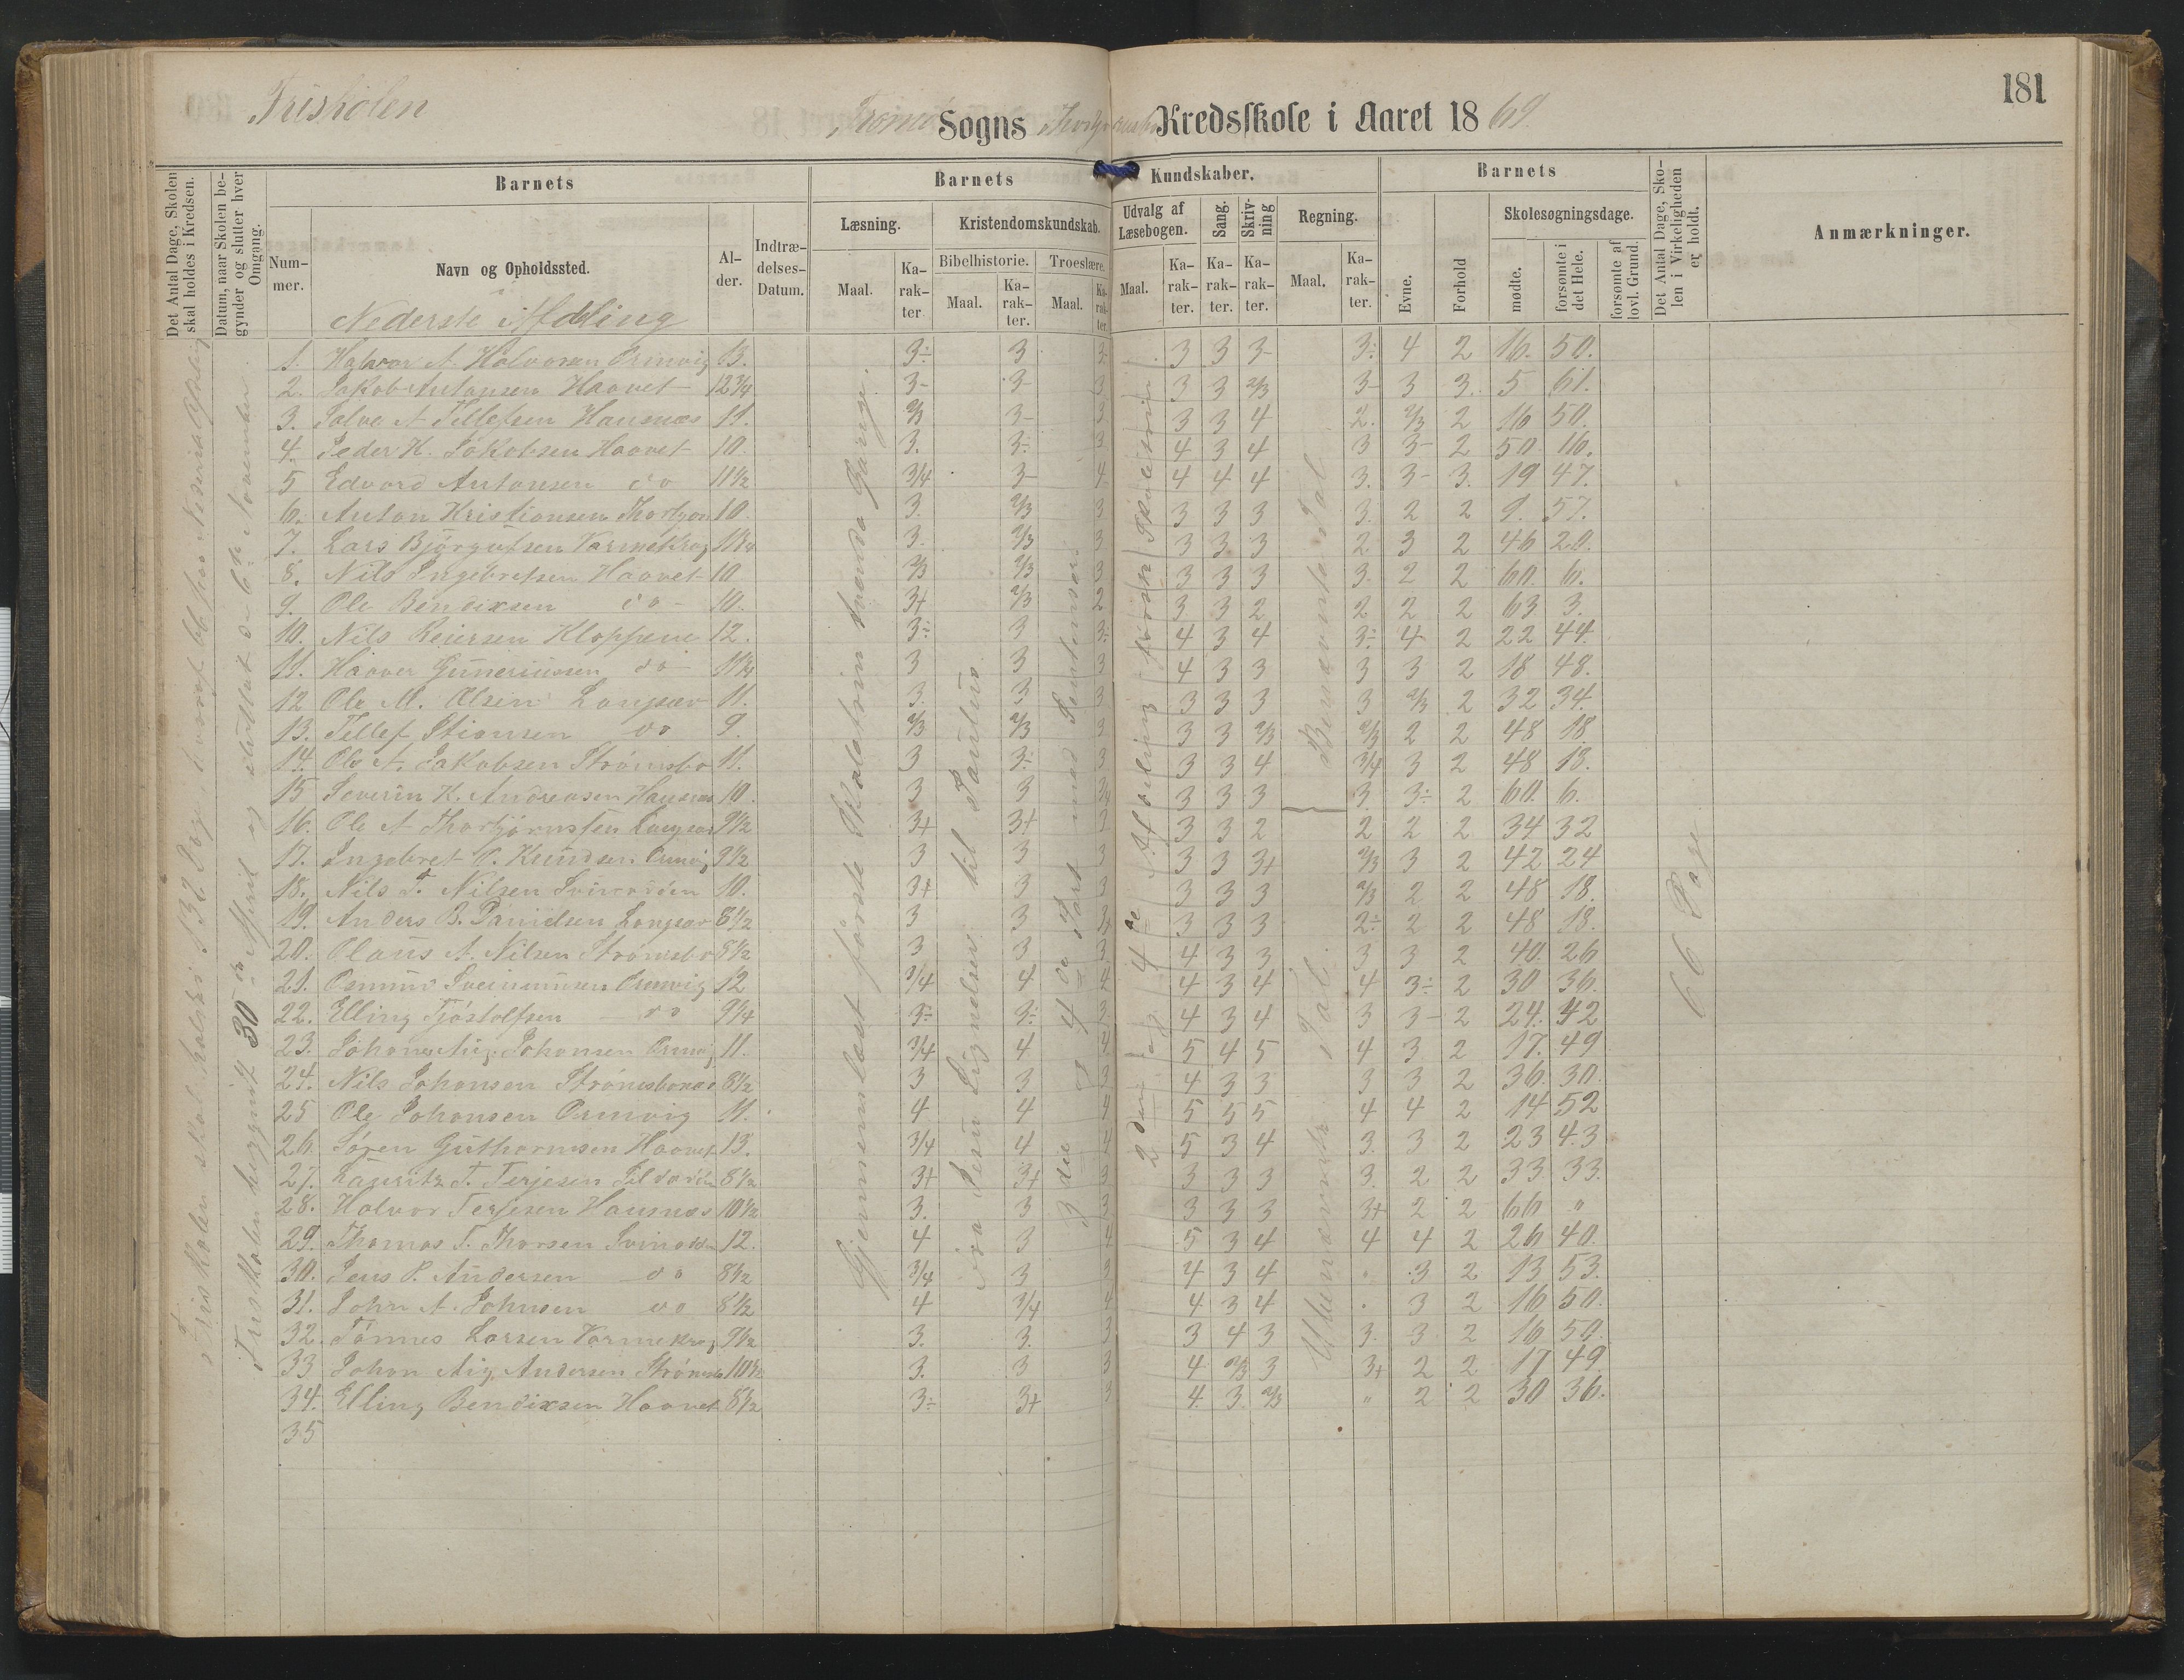 181
Friskolen
Tromø Sogns Kredsskole i Aaret 1869.
Det Antal Dage, Skolen skal holdes i Kredsen.
Datum, naar Skolen begynder og slutter hver Omgang.
Barnets
Nummer.
Navn og Opholdssted.
Alder.
Indtrædelses-Datum.
Barnets Kundskaber.
Læsning.
Maal.
Karakter
Kristendomskundskab.
Bibelhistorie.
Maal.
Karakter.
Troeslære.
Maal.
Karakter
Udvalg af Læsebogen.
Maal.
Karakter.
Sang.
Karakter.
Skrivning
Karakter.
Regning.
Maal.
Karakter.
Barnets
Evne.
Forhold
Skolesøgningsdage.
mødte.
forsømte i det Hele.
forsømte af lovl. Grund.
Det Antal Dage, Skolen i Virkeligheden er holdt.
Anmærkninger.
Nederste Afdeling
1. Halvor A. Halvorsen Ormvig 13. 3÷ 3 3- 3 3 3- 3÷ 4 2 16. 50.
2. Jakob Antonsen Haavet 12 3/4 3- 3- 3 3 3 2/3 3- 3 3. 5 61.
3. Salve A Tellefsen Hausnæs 11. 2/3 3- 3 3 3 4 2. 2/3 2 16 50.
4. Peder K. Jakobsen Haavet 10. 3. 3÷ 3 4 3 4 3 3- 2 50 16.
5 Edvard Antonsen do 11 1/2 3/4 3- 4 4 4 4 3. 3- 3. 19 47.
6. Anton Kristiansen 10. 3. 2/3 3 3 3 3 3. 2 2 9. 57.
7. Lars Bjørgufsen Varmekrog 3. 2/3 3 3 3 3 2 3 2 46 20.
8. Nils Ingebretsen Haavet 10 2/3 2/3 3 3 3 3 3. 2 2 60. 6.
9. Ole Bendixsen do 10. 3+ 2/3 2 3 3 2 2 2 2 63 3.
10. Nils Reiersen Kloppene 12. 3÷ 3 3÷ 4 3 4 3÷ 4 2 22 44.
11. Haaver Guneriussen do 3 3 3 4 3 3 3 3 2 18 48.
12 Ole M. Olsen Longsæv 11. 3. 3 3 3 3 3 3 2/3 2 32 34.
13. Tellef Stiansen do 9. 2/3 2/3 3 3 3 2/3 2/3 2 2 48 18.
14. Ole A. Jakobsen Strømsbo 11. 3 3÷ 3 3 3 4 3/4 3 2 48 18.
15 Severin K. Andreasen Hausnæs 10. 3 3 3/4 3 3 3 3. 3÷ 2 60. 6.
16. Ole A Thorbjørnsen 9 1/2 3+ 3+ 2 3 3 2 2 2 2 34 32
17. Ingebret O. Knudsen Ormvig 9 1/2 3 3 3 3 3 3+ 2/3 3 2 42 24
18. Nils T. Nilsen 10. 3+ 3 3 3 3 3 2/3 2 2 48 18.
19. Anders B. Danielsen Longsæv 8 1/2 3 3 3+ 3 3 3 2÷ 2 2 48 18.
20. Olaus A. Nilsen Strømsbo 8 1/2 3 3 3. 4 3 3 3 3 2 40. 26
21. Osmund Ormvig 12 3/4 4 4 4 3 4 4 3÷ 2 30 36.
22. Elling Tjøstolfsen do 9 1/4 3÷ 3÷ 3. 4 3 4 3 3- 2 24. 42
23. Johans Aug. Johansen Ormvig 11. 3/4 4 4 5 4 5 4 3 2 17. 49
24. Nils Johansen Strømsbonæs 8 1/2 3 3 3 4 3 3 3 3 2 36. 30.
25 Ole Johansen Ormvig 11. 4 4 4 5 5 5 4 4 2 14 52
26. Søren Guthormsen Haavet 13. 3/4 4 4 5 3 4 3. 3 2 23 43
27. Lauritz T. Terjesen 8 1/2 3+ 3+ 3 3 3 3 3. 2 2 33. 33.
28. Halvor Terjesen Hausnæs 10 1/2 3. 3 3 3 3 3 3+ 2 2 66 "
29. Thomas T. Thorsen 12. 4 3 4 5 3 4 4 4 2 26 40.
30. Jens P. Andersen do 8 1/2 3/4 3 3 4 3 4 " 3 2 13 53.
31. John A. Johnsen do 8 1/2 4 3/4 4 4 3 4 " 3 2 16 50.
32. Tønnes Larsen Varmekrog 9 1/2 3. 3. 3 3 4 3 3. 3 2 16 50.
33 Johan Aug. Andersen 3. 3 3 4 2/3 3 3+ 2 2 17 49.
34. Elling Bendixsen Haavet 8 1/2 3÷ 3+ 3 4. 3. 2/3 " 2 2 30 36.
35
Friskolen skal holdes 132 Dage
Friskolen begyndt 30te April og sluttet d 6te November
Gjennemlæst første Skoletrin
fra Jesu Lignelser til Paulus
3die og 4de Part med
2den og 4de Afdeling første Skoletrin
Ubenævnte Tal. Benævnte Tal.
66 Dage